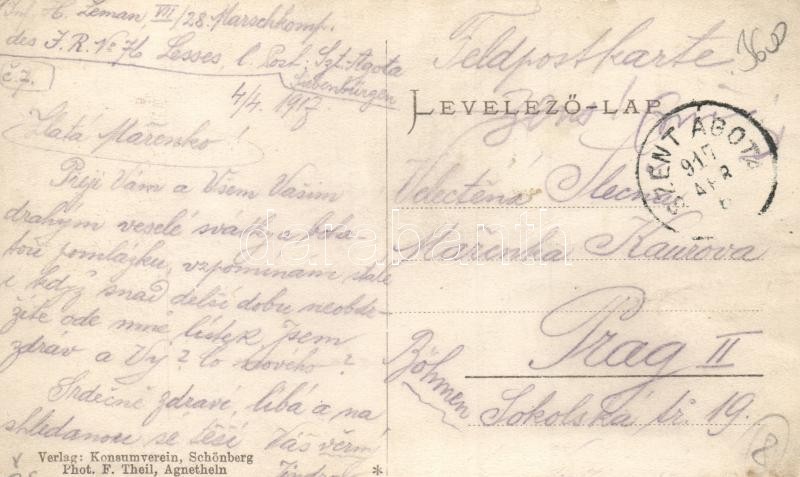 Inf. H. Leman VII/28. Marschkomp.
des I. R. No Lesses, l. Post: Szt-Agota
Siebenbürgen
č. 7.
4/4. 1917
Zlatá Mařenko!
Přeji Vám a Všem Vašim
drahým veselé svátky a boha-
tou pomlázku, vzpomínám stále
i když snad delší dobu neobdr-
žíte ode mně lístek. Jsem
zdráv a Vy? Co nového?
Srdečně zdraví, líbá a na
shledanou se těší Váš věrný
Jindra
Verlag: Konsumverein, Schönberg
Phot. F. Theil, Agnetheln
*
Feldpostkarte
360
LEVELEZŐ-LAP
SZENT ÁGOTA
917
APR
6
Velectěná Slečna
Mařenka Kaurova
Prag II
Böhmen
Sokolská tř. 19.
8
darabanth